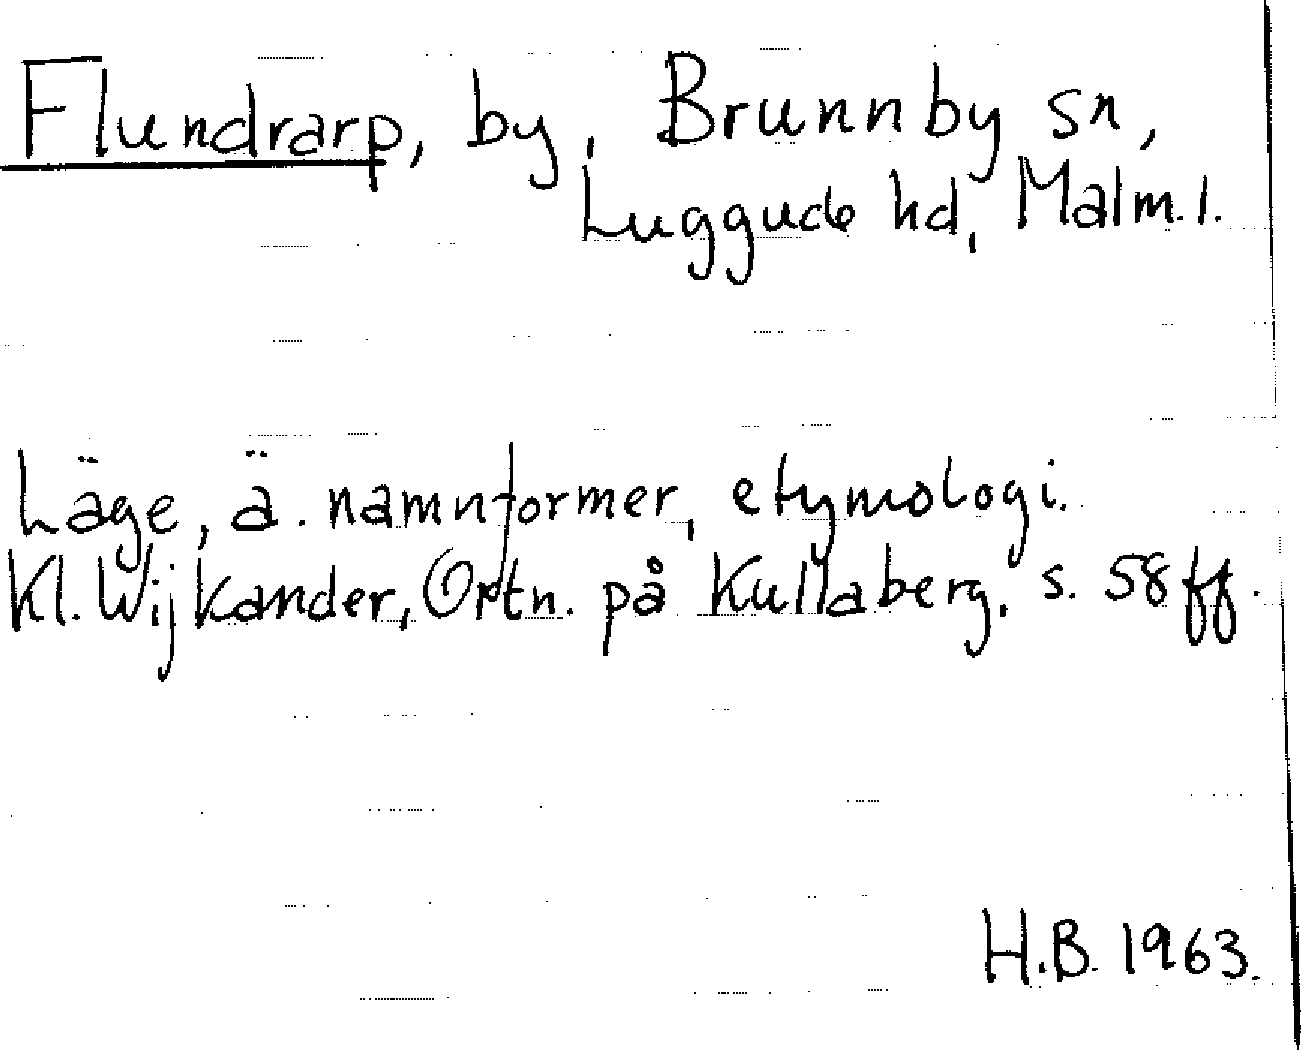 Flundrarp, by, Brunnby sn,
Luggude hd, Malm. l.
Läge, ä. namnformer, etymologi.
Kl. Wijkander, Ortn. på Kullaberg, s. 58 ff.
H.B. 1963.